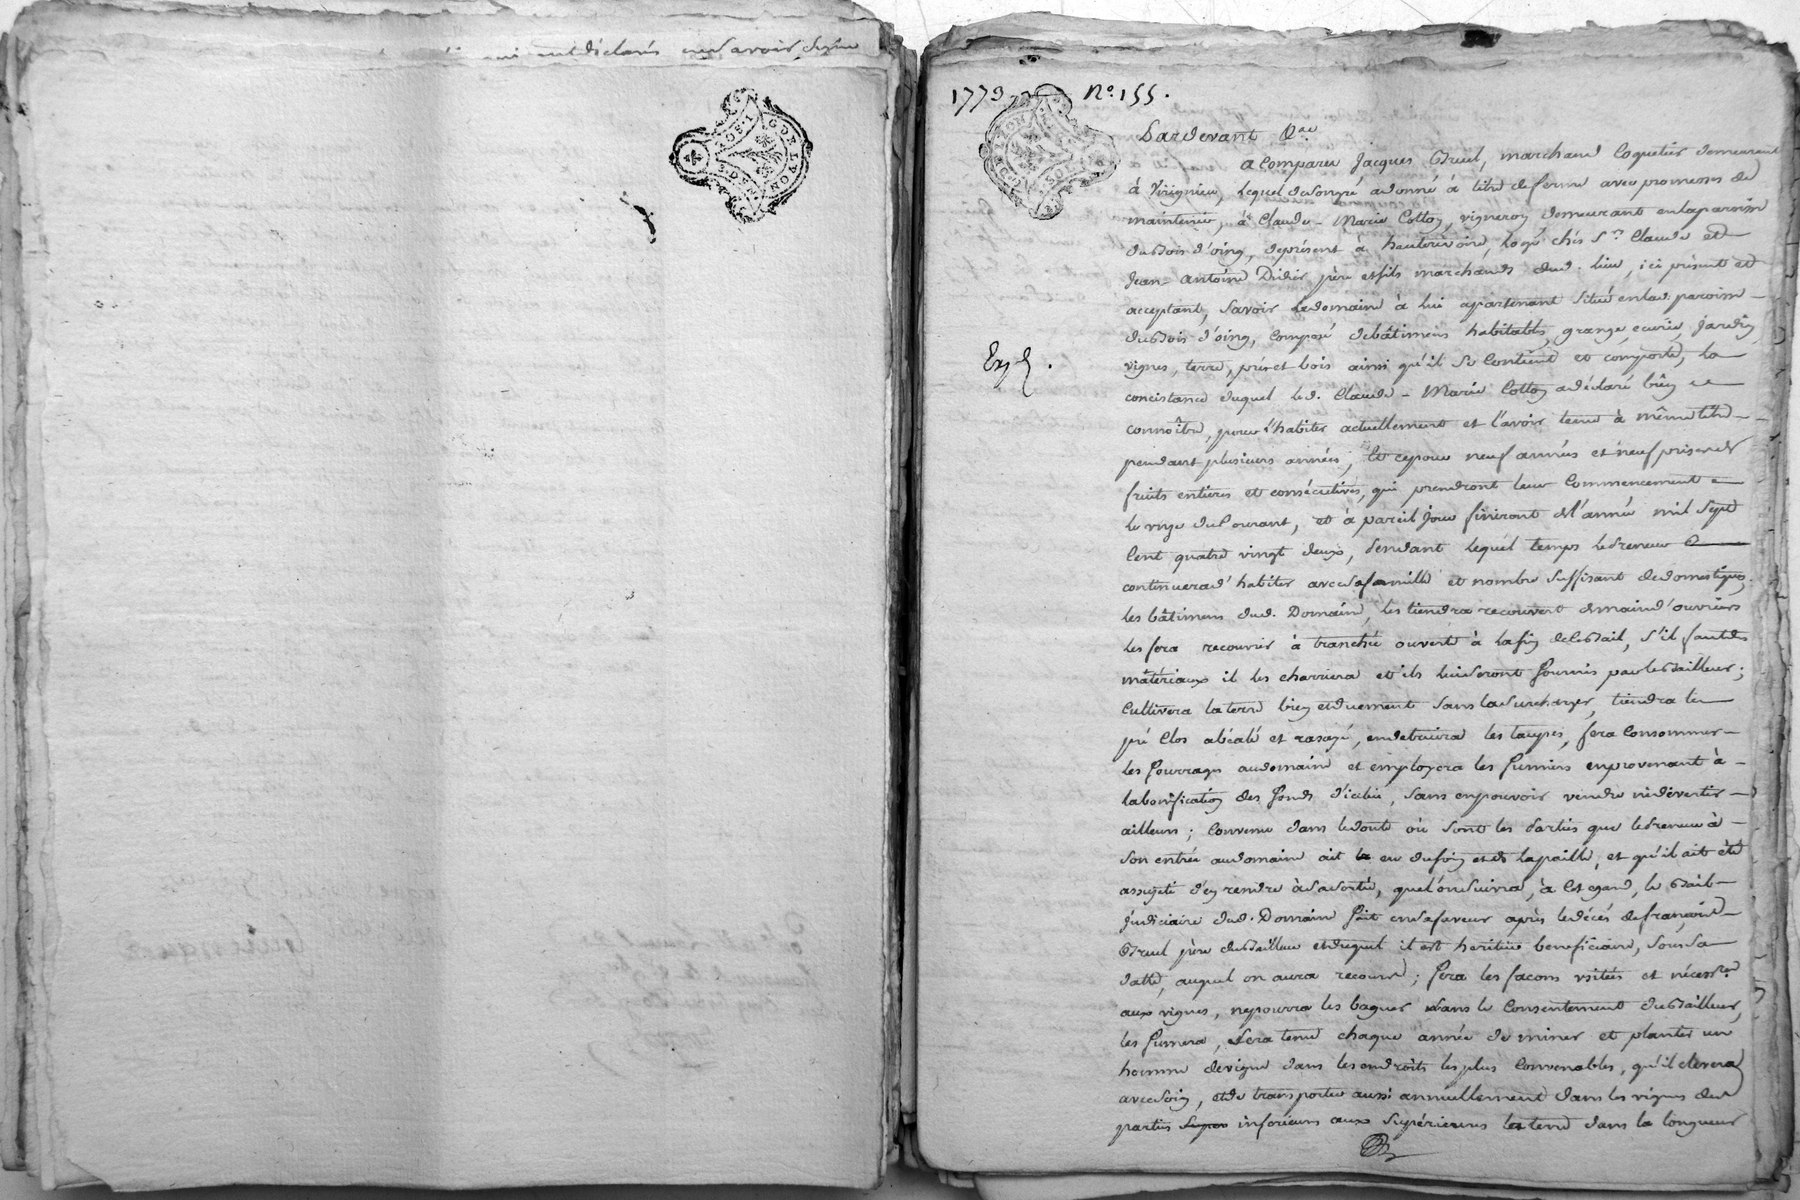 qui ont déclaré ne savoir signer
G. DE LYON
1773 No. 155.
Pardevant &ae
a Comparu Jacques Breul, marchand Coquetier demeurant
à Virignieu, Lequel de son gré a donné à titre de ferme avec promesses de
maintenir, à Claude-Marie Cottoy, vigneron demeurant en la paroisse
du Bois d'oing, de présent à hauterivoire, logé chés Sr. Claude et
Jean-Antoine Didier père et fils marchands dud. lieu, ici présent et
acceptant, Savoir Le domaine à lui apartenant Situé en lad. paroisse
du Bois d'oing, Composé de bâtimens habitables, grange, ecurie, jardin,
Exp.
vignes, terre, prés et bois ainsi qu'il Se Contient et comporte, la
concistance duquel led. Claude-Marie Cottoy a déclaré bien
connoître, pour l'habiter actuellement et l'avoir tenu à même titre
pendant plusieurs années; Et ce pour neuf années et neuf prises de
fruits entieres et consécutives, qui prendront leur Commencement
le onze du Courant, et à pareil jour finiront de l'année mil Sept
Cent quatre vingt deux, Pendant lequel temps le Preneur
continuera d'habiter avec sa famille et nombre Suffisant de domestiques,
les bâtimens dud. Domaine, les tiendra recouvert de main d'ouvriers
les fera recouvrir à tranchée ouverte à la fin de ce Bail, s'il faut des
matériaux il les charriera et ils lui Seront fournis par le Bailleur;
Cultivera la terre bien et duement Sans la Surcharger, tiendra le
pré Clos abéalé et rasagé, en detruira les taupes, fera Consommer
les fourrages au domaine et employera les fumiers en provenant à
la bonification des fonds d'icelui, Sans en pouvoir vendre ni divertir
ailleurs; Convenu dans le doute où Sont les Parties que le Preneur à
Son entrée au domaine ait eu du foin et de la paille, et qu'il ait été
assujeti d'en rendre à Sa Sortie, que l'on Suivra, à Cet egard, le Bail
judiciaire dud. Domaine fait en Sa faveur après le décés de françois
Breul père du Bailleur et duquel il est heritier beneficiaire, Sous Sa
datte, auquel on aura recours; fera les facons usitées et nécessres
aux vignes, ne pourra les baguer Sans le Consentement du Bailleur,
les fumera, Sera tenu chaque année de miner et planter un
homme de vigne dans les endroits les plus Convenables, qu'il élevera
avec Soin, et de transporter aussi annuellement dans les vignes des
parties inférieures aux Supérieures les terre dans la longueur